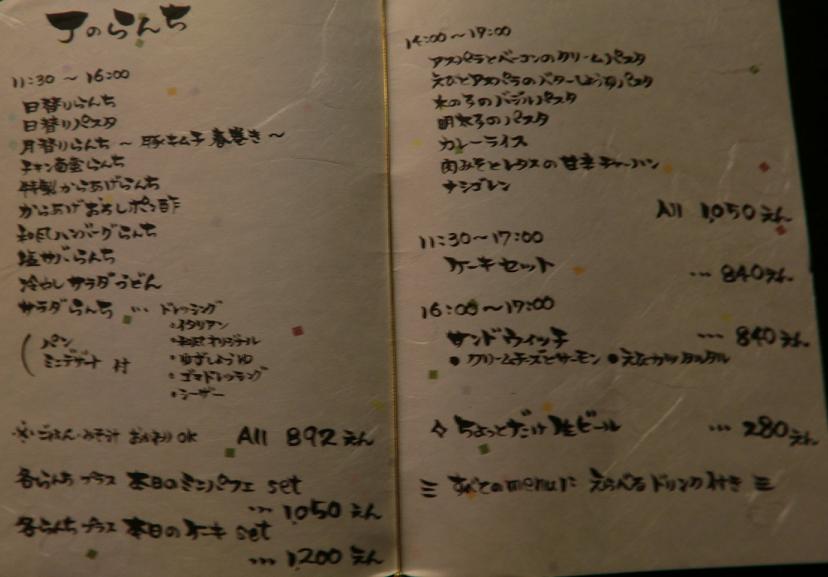 のらんち
11:30 ～ 16:00
日替りらんち
日替りパスタ
月替りらんち ～ 豚キムチ春巻き ～
チキン南蛮らんち
特製からあげらんち
からあげおろしポン酢
和風ハンバーグらんち
塩サバらんち
冷やしサラダうどん
サラダらんち … ドレッシング
・イタリアン
(パン ・和風オリジナル
ミニデザート 付 ・ゆずしょうゆ
・ゴマドレッシング
・シーザー
※ ごはん・みそ汁 おかわりok All 892えん
各らんち プラス 本日のミニパフェ set
… 1,050えん
各らんち プラス 本日のケーキ set
… 1,200えん
14:00～17:00
アスパラとベーコンのクリームパスタ
えびとアスパラのバターしょうゆパスタ
木の子のバジルパスタ
明太子のパスタ
カレーライス
肉みそとレタスの甘辛チャーハン
ナシゴレン
All 1,050えん
11:30～17:00
ケーキセット … 840えん
16:00～17:00
サンドウィッチ … 840えん
●クリームチーズとサーモン ●えびカツタルタル
☆ ちょっとだけ生ビール … 280えん
≡ すべてのmenuに えらべるドリンク付き ≡